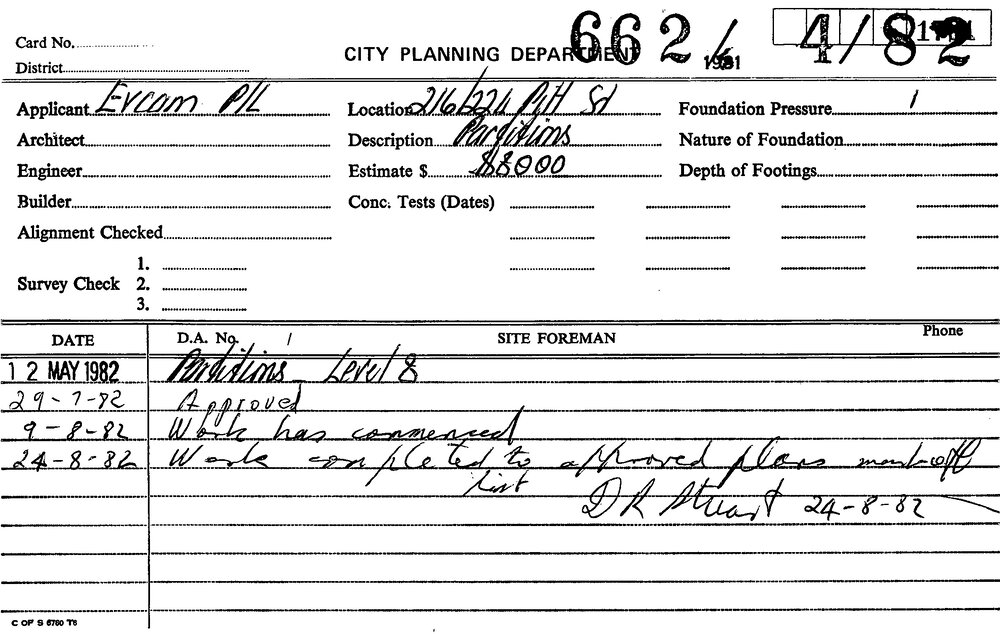 Card No.
District
CITY PLANNING DEPARTMENT
662/ 4/82
1981
Applicant Evcom P/L
Location 216/224 Pitt St
Foundation Pressure
Architect
Description Partitions
Nature of Foundation
Engineer
Estimate $ $8000
Depth of Footings
Builder
Conc. Tests (Dates)
Alignment Checked
Survey Check 1. 2. 3.
DATE D.A. No. / SITE FOREMAN Phone
12 MAY 1982 Partitions Level 8
29-7-82 Approved
9-8-82 Work has commenced
24-8-82 Work completed to approved plans mark off
list
D R Stuart 24-8-82
C OF S 6760 T6